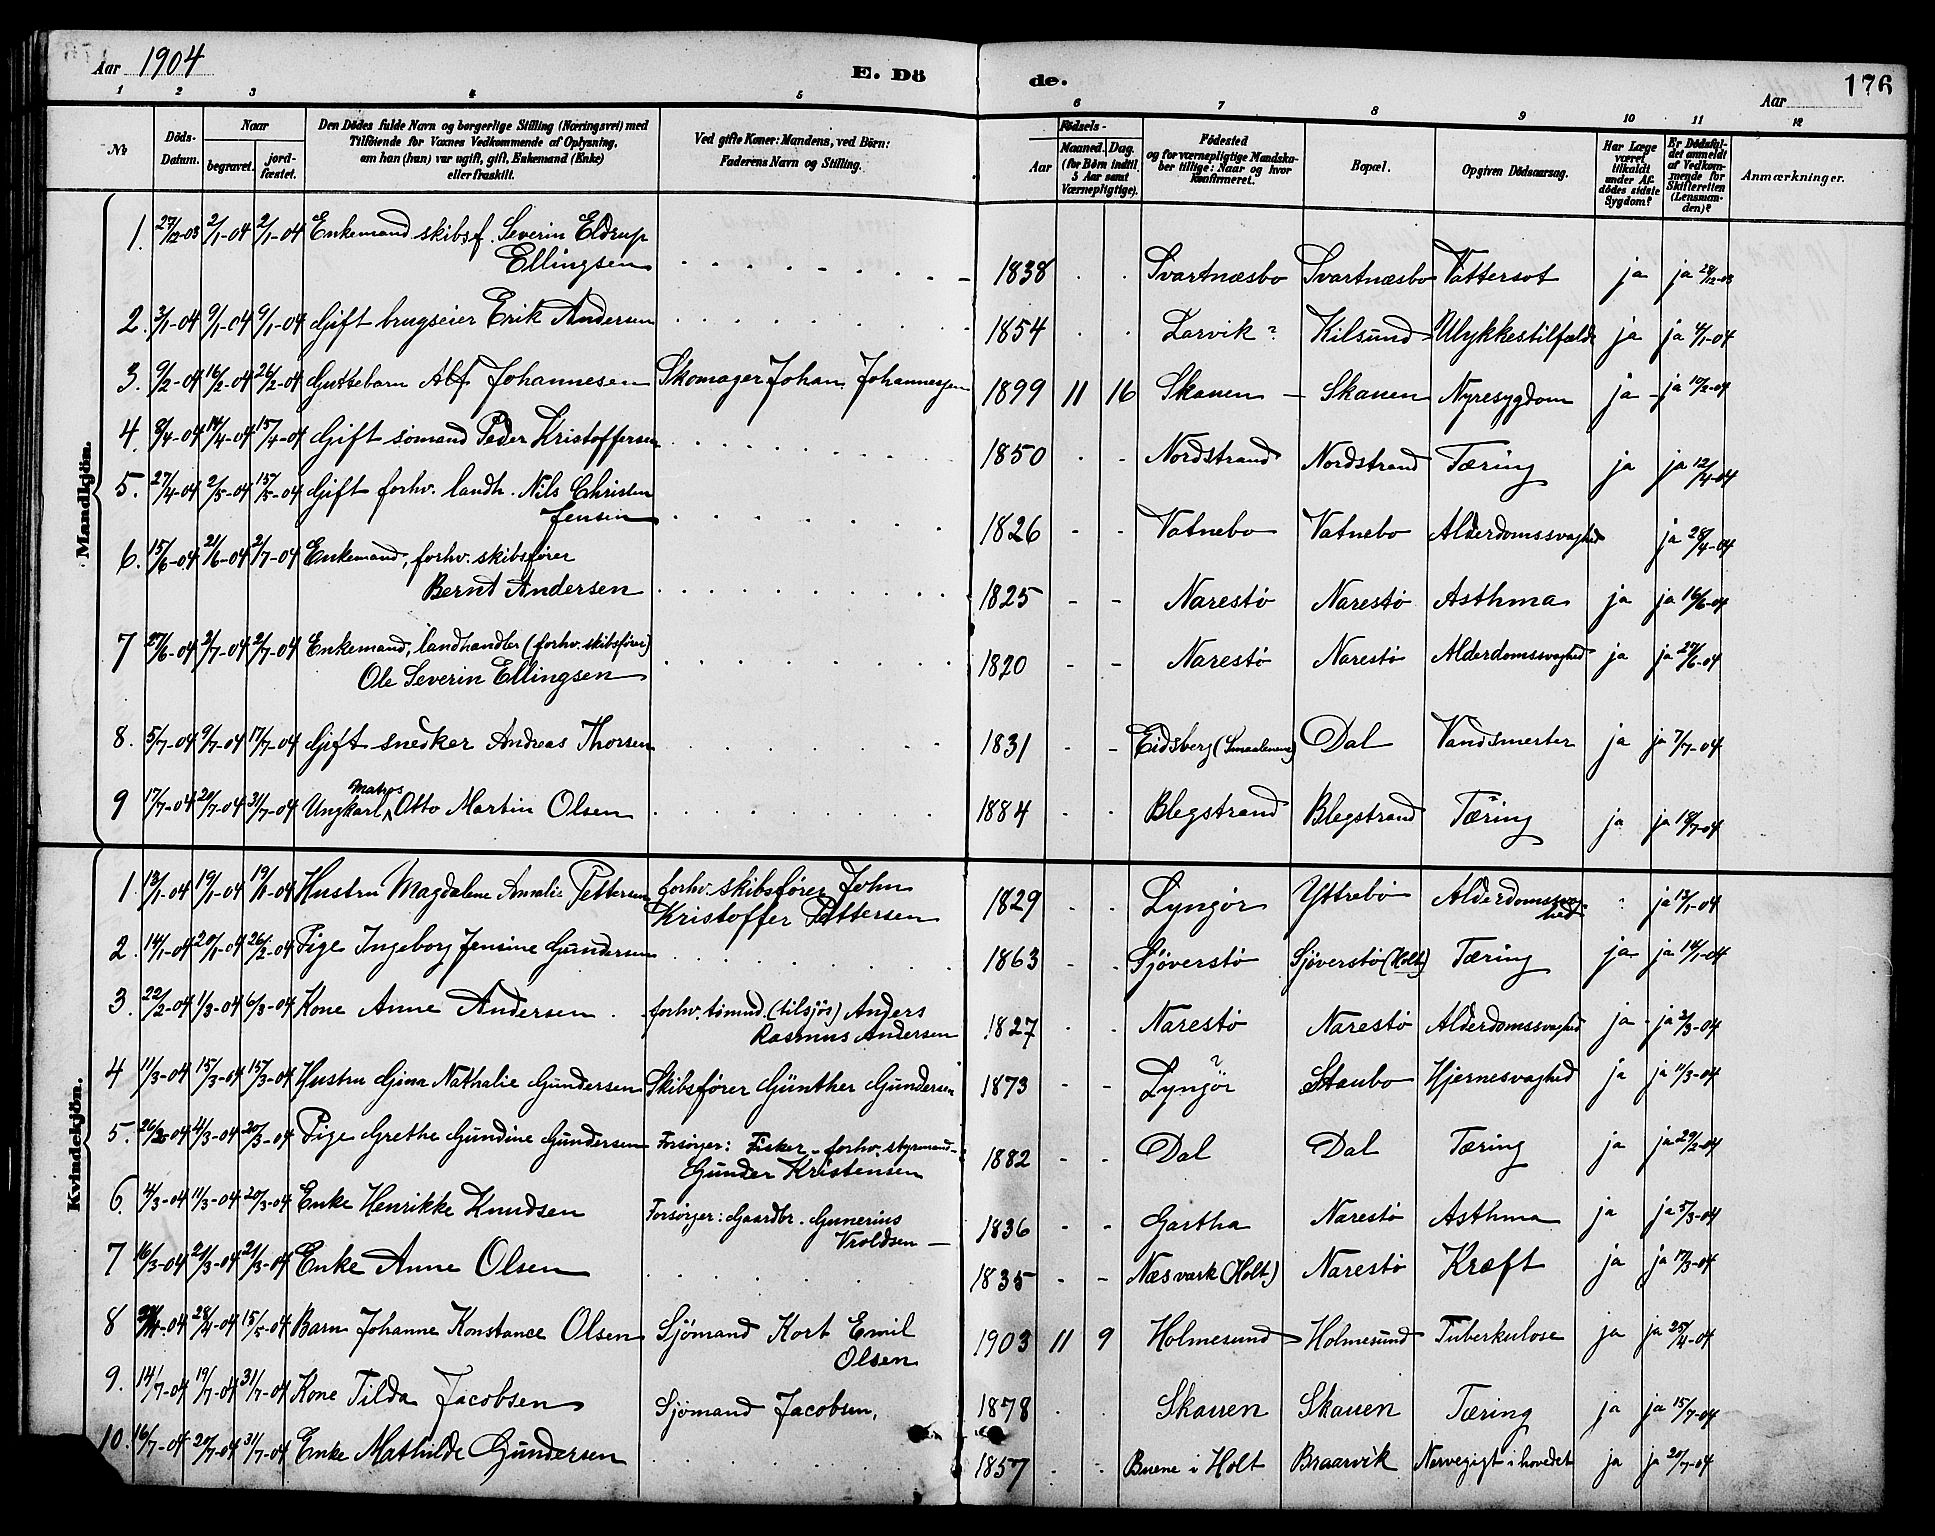 Aar 1904 E. Dö de. Aar 176
1 2 3 4 5 6 7 8 9 10 11 12
№ Döds-Datum. Naar begravet. jord-fæstet. Den Dödes fulde Navn og borgerlige Stilling (Næringsvei) med Tilföiende for Voxnes Vedkommende af Oplysning, om han (hun) var ugift, gift, Enkemand (Enke) eller fraskilt. Ved gifte Koner: Mandens, ved Börn: Faderens Navn og Stilling. Födsels- Aar Maaned. Dag. (for Börn indtil 5 Aar samt Værnepligtige). Födested og for værnepligtige Mandskaber tillige: Naar og hvor konfirmeret. Bopæl. Opgiven Dödsaarsag. Har Læge været tilkaldt under Afdödes sidste Sygdom? Er Dödsfaldet anmeldt af Vedkommende for Skifteretten (Lensmanden)? Anmærkninger.
Mandkjön.
1. 27/12-03 2/1-04 2/1-04 Enkemand skibsf. Severin Eldrup
Ellingsen 1838 Svartnæsbo Svartnæsbo Vattersot ja ja 28/12-03
2. 3/1-04 9/1-04 9/1-04 Gift brugseier Erik Andersen 1854 Larvik? Kilsund Ulykkestilfælde ja ja 4/1-04
3. 9/2-04 16/2-04 26/2-04 Guttebarn Alf Johannesen Skomager Johan Johannesen 1899 11 16 Skauen - Skauen Nyresygdom ja - ja 10/2-04
4. 8/4-04 14/4-04 15/4-04 Gift sømand Peder Kristoffersen 1850 Nordstrand Nordstrand Tæring ja ja 12/4-04
5. 27/4-04 2/5-04 15/5-04 Gift forhv. landh. Nils Christen
Jensen 1826 Vatnebo Vatnebo Alderdomssvaghed ja 28/4-04
6. 15/6-04 21/6-04 2/7-04 Enkemand, forhv. skibsfører
Bernt Andersen 1825 Narestø Narestø Asthma ja ja 16/6-04
7 27/6-04 2/7-04 2/7-04 Enkemand, landhandler (forhv. skibsfører)
Ole Severin Ellingsen 1820 Narestø Narestø Alderdomssvaghed ja ja 27/6-04
8. 5/7-04 9/7-04 17/7-04 Gift snedker Andreas Thorsen 1831 Eidsberg (Smaalenene) Dal Vandsmerter ja ja 7/7-04
9 17/7-04 20/7-04 31/7-04 Ungkarl, Matros Otto Martin Olsen 1884 Blegstrand Blegstrand Tæring ja ja 18/7-04
Kvindekjön.
1. 13/1-04 19/1-04 19/1-04 Hustru Magdalene Amalie Pettersen forhv. skibsfører John
Kristoffer Pettersen 1829 Lyngør Yttrebø Alderdomssvaghed ja 13/1-04
2. 14/1-04 20/1-04 26/2-04 Pige Ingeborg Jensine Gundersen 1863 Sjøverstø Sjøverstø (Holt) Tæring ja ja 14/1-04
3. 22/2-04 1/3-04 6/3-04 Kone Anne Andersen forhv. tømmd. (tilsjøs) Anders
Rasmus Andersen 1827 Narestø Narestø Alderdomssvaghed ja ja 2/3-04
4 11/3-04 15/3-04 15/3-04 Hustru Gina Nathalie Gundersen Skibsfører Günther Gundersen 1873 Lyngör? Staubo Hjernesvaghed ja ja 11/3-04
5. 26/2-04 4/3-04 20/3-04 Pige Grethe Gundine Gundersen Forsørger: Fisker - forhv. styrmand -
Gunder Kristensen 1882 Dal Dal Tæring ja ja 29/2-04
6. 4/3-04 11/3-04 20/3-04 Enke Henrikke Knudsen Forsørger: Gaardbr. Gunerius
Vroldsen 1836 Gartha Narestø Asthma ja ja 5/3-04
7 16/3-04 21/3-04 21/3-04 Enke Anne Olsen 1835 Næs værk (Holt) Narestø Kræft ja ja 17/3-04
8 /4-04 28/4-04 15/5-04 Barn Johanne Konstance Olsen Sjömand Kort Emil
Olsen 1903 11 9 Holmesund Holmesund Tuberkulose ja ja 25/4-04
9. 14/7-04 19/7-04 31/7-04 Kone Tilda Jacobsen Sjömand Jacobsen, 1878 Skauen Skauen Tæring ja ja 15/7-04
10. 16/7-04 20/7-04 31/7-04 Enke Mathilde Gundersen 1857 Buene i Holt Braarvik Nervegigt i hovedet ja ja 20/7-04